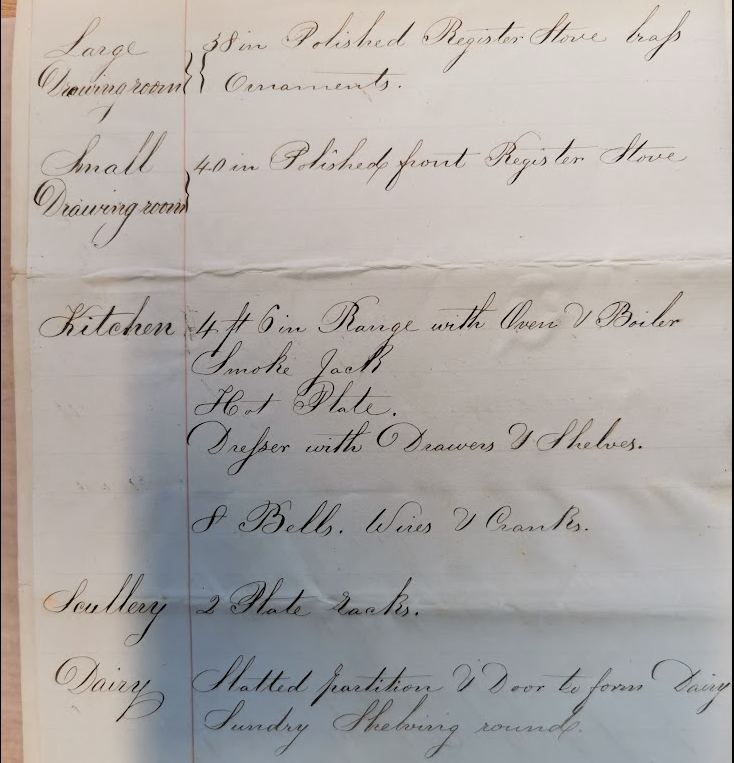 Large 38 in Polished Register Stove brass
Drawingroom Ornaments.
Small 40 in Polished front Register Stove
Drawingroom
Kitchen 4 ft 6 in Range with Oven & Boiler
Smoke Jack
Hot Plate.
Dresser with Drawers & Shelves.
8 Bells. Wires & Cranks.
Scullery 2 Plate racks.
Dairy Slatted partition & Door to form Dairy
Sundry Shelving round.